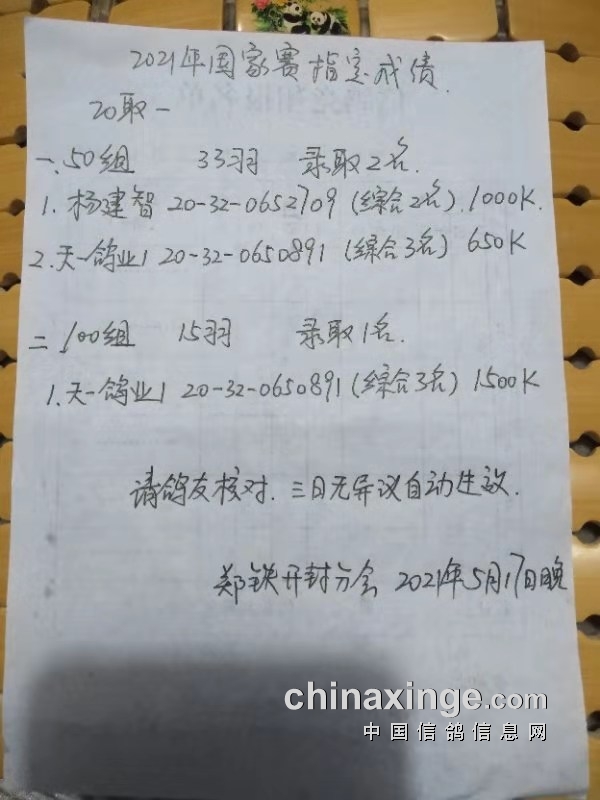 2021年国家赛指定成绩.
20取一
一、50组 33羽 录取2名.
1. 杨建智 20-32-0652709 (综合2名). 1000K.
2. 天一鸽业1 20-32-0650891 (综合3名) 650K
二 100组 15羽 录取1名.
1. 天一鸽业1 20-32-0650891 (综合3名) 1500K
请鸽友核对. 三日无异议自动生效.
郑铁开封分会 2021年5月17日晚
chinaxinge.com
中国信鸽信息网